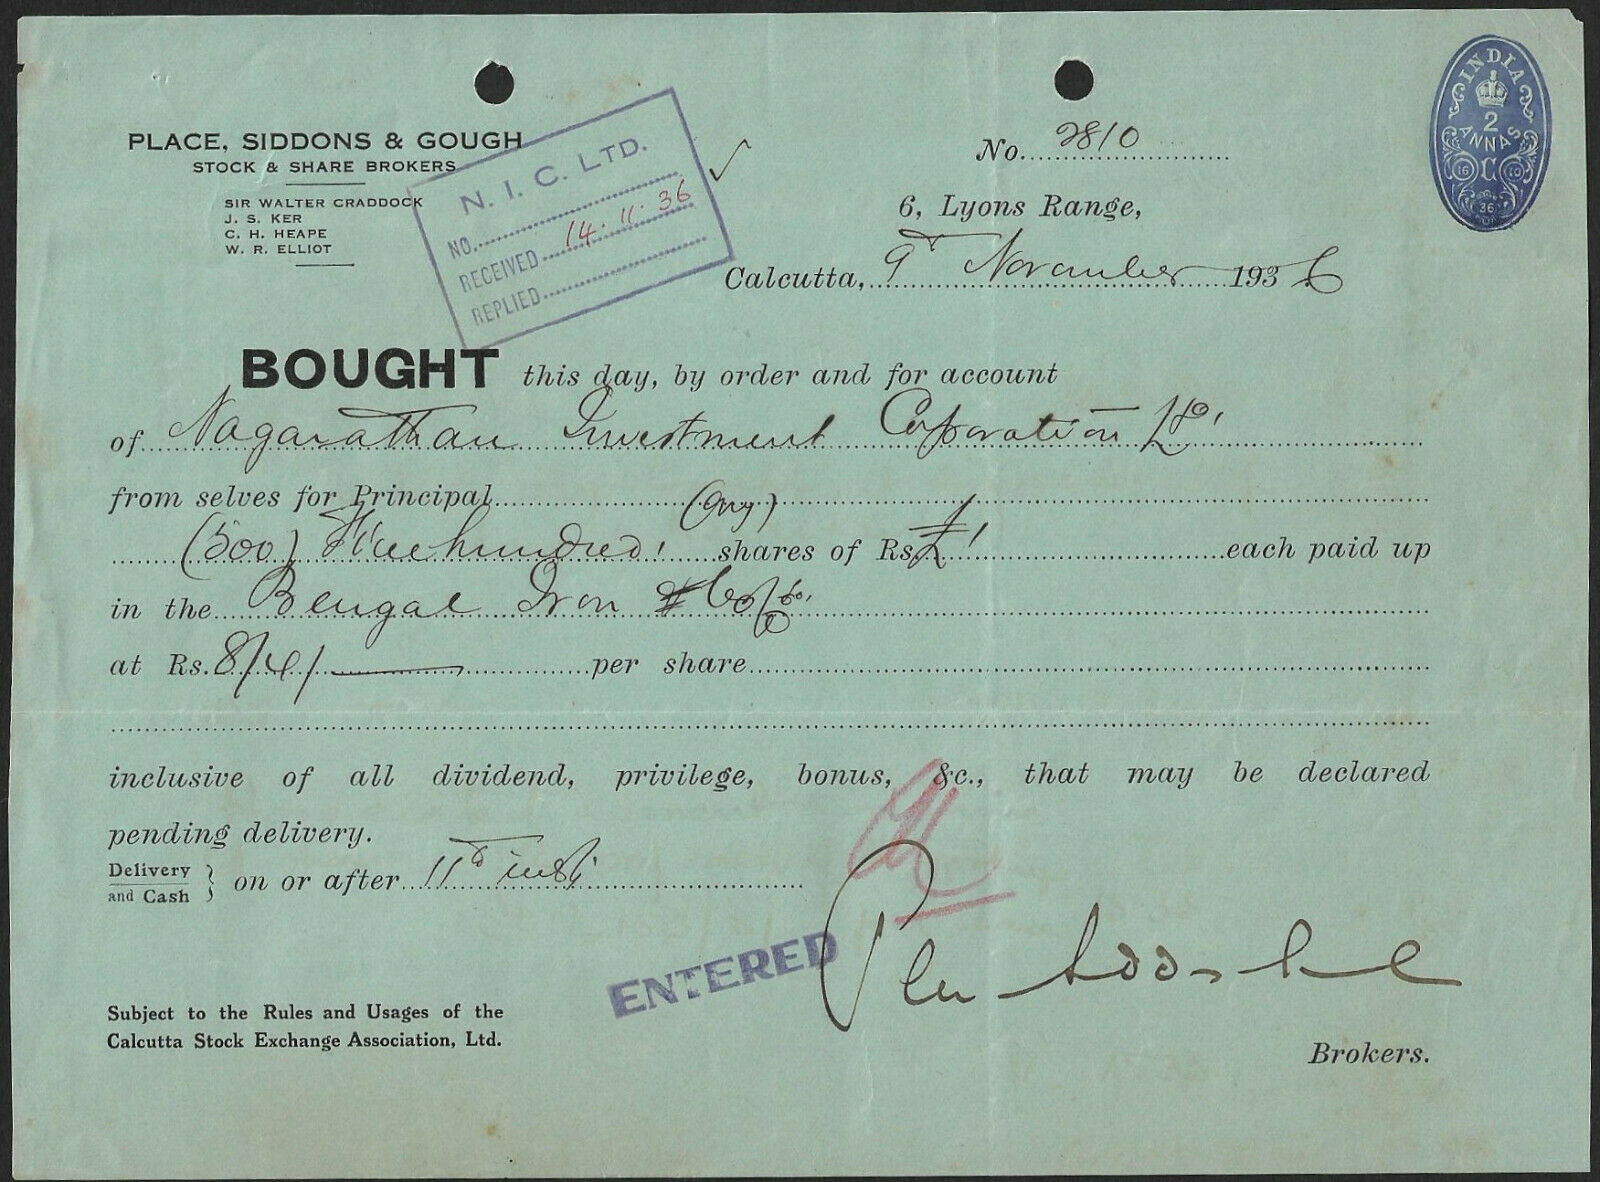 PLACE, SIDDONS & GOUGH
STOCK & SHARE BROKERS
SIR WALTER CRADDOCK
J. S. KER
C. H. HEAPE
W. R. ELLIOT
N. I. C. LTD.
NO.
RECEIVED 14.11.36
REPLIED
INDIA
2
ANNAS
C
16 10
36
No. 2810
6, Lyons Range,
Calcutta, 9th November 1936
BOUGHT this day, by order and for account
of Nagarathar Investment Corporation Ltd.
from selves for Principal
(500) Five hundred (Ony) shares of Rs. £1 each paid up
in the Bengal Iron Co
at Rs. 8/4/ per share
inclusive of all dividend, privilege, bonus, &c., that may be declared
pending delivery.
Delivery and Cash } on or after 11th inst.
ENTERED
Subject to the Rules and Usages of the
Calcutta Stock Exchange Association, Ltd.
Brokers.